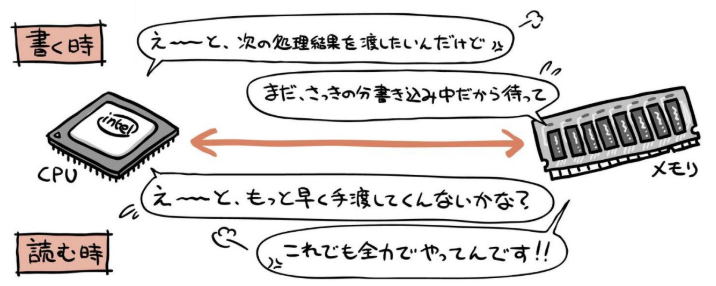 書く時
え〜〜と、次の処理結果を渡したいんだけど
まだ、さっきの分書き込み中だから待って
intel
CPU
メモリ
え〜〜と、もっと早く手渡してくんないかな？
読む時
これでも全力でやってんです!!